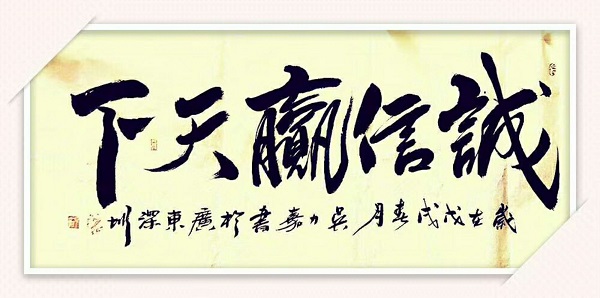 誠信贏天下
歲在戊戌春月吳力嘉書於廣東深圳